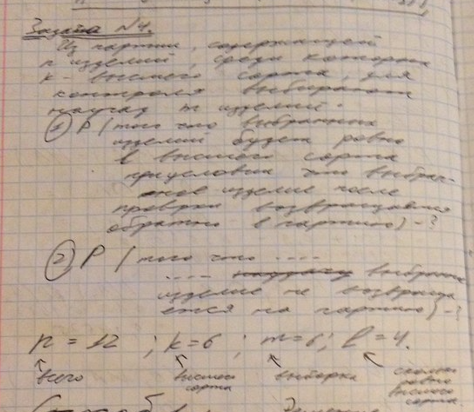 Задача №4.
Из партии, содержащей
n изделий, среди которых
k - высшего сорта, для
контроля выбирают
наугад m изделий.
① P (того что выбранных
изделий будет ровно
l высшего сорта
при условии что выбран-
ное изделие после
проверки возвращается
обратно в партию) - ?
② P (того что ....
.... выбранное
изделие не возвраща
ется на партию) - ?
n = 12 ; k = 6 ; m = 6 ; l = 4.
всего высшего сорта выборка сколько ровно высшего сорта
Способ